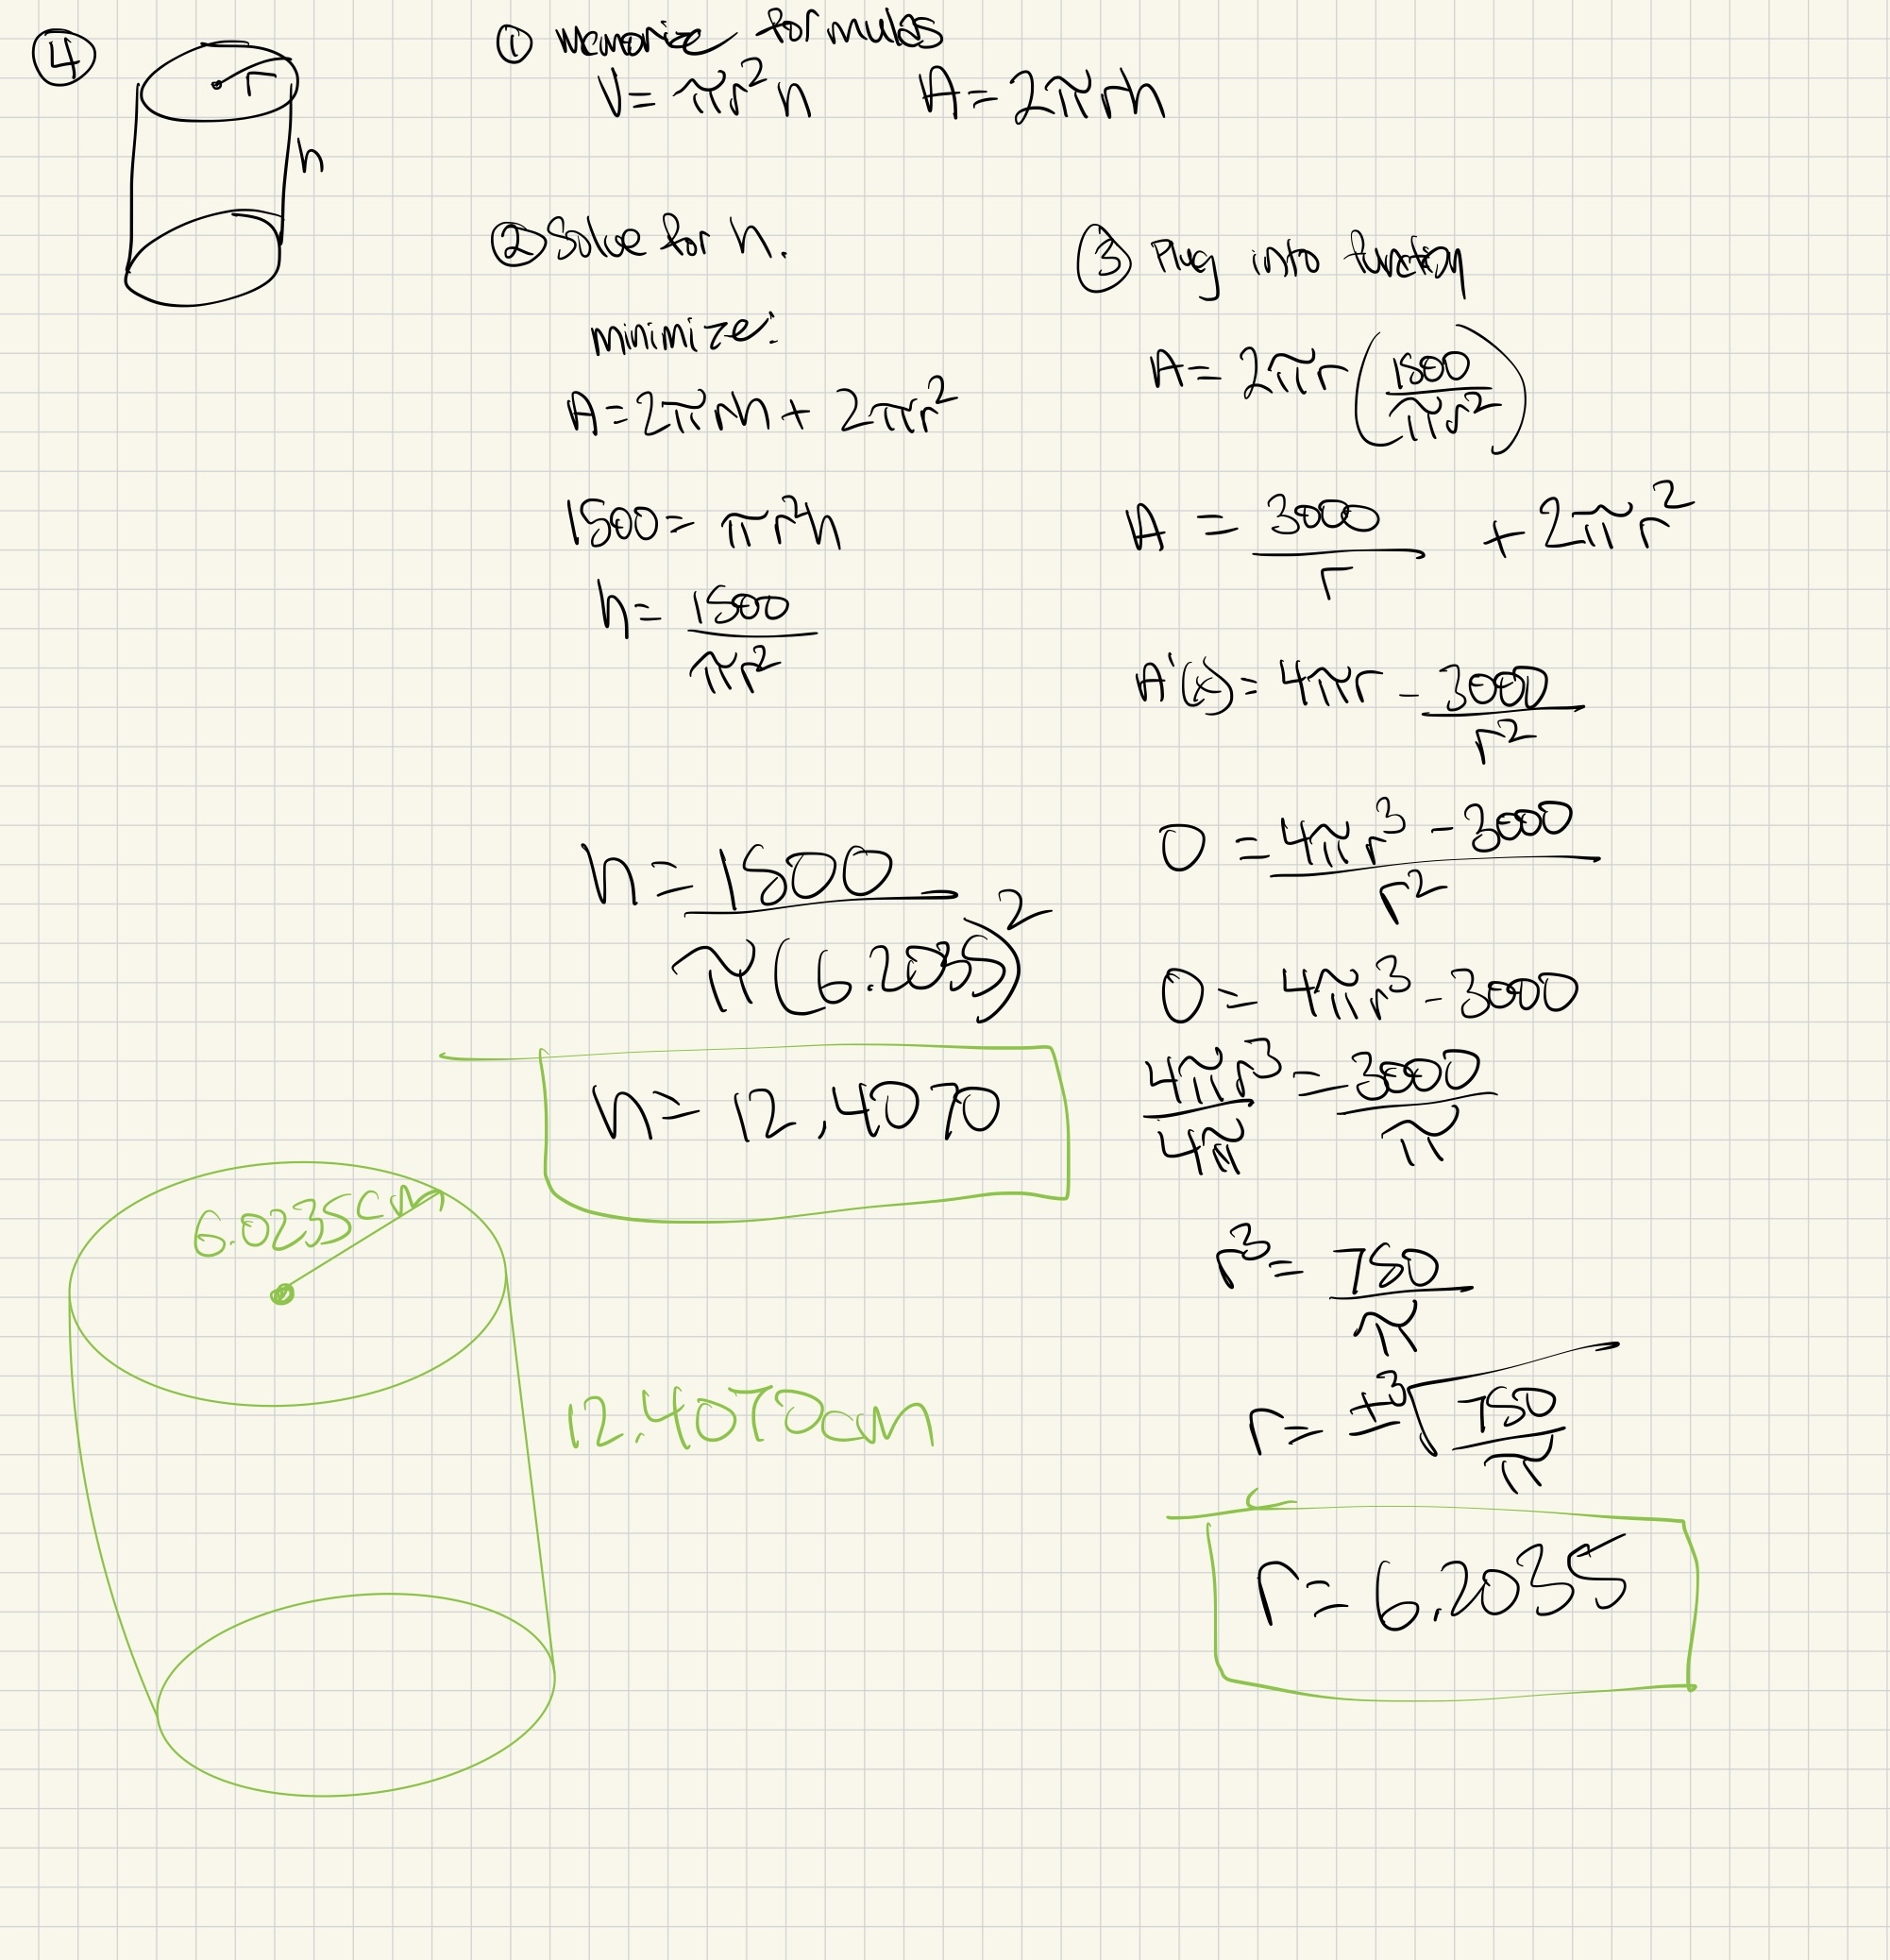 ④
r
h
① Memorize formulas
V = πr²h A = 2πrh
② Solve for h.
minimize:
A = 2πrh + 2πr²
1500 = πr²h
h = 1500/πr²
h = 1500/π(6.2035)²
h = 12.4070
③ Plug into function
A = 2πr(1500/πr²)
A = 3000/r + 2πr²
A'(x) = 4πr - 3000/r²
0 = 4πr³ - 3000/r²
0 = 4πr³ - 3000
4πr³/4π = 3000/π
r³ = 750/π
r = ±³√750/π
r = 6.2035
6.0235cm
12.4070cm